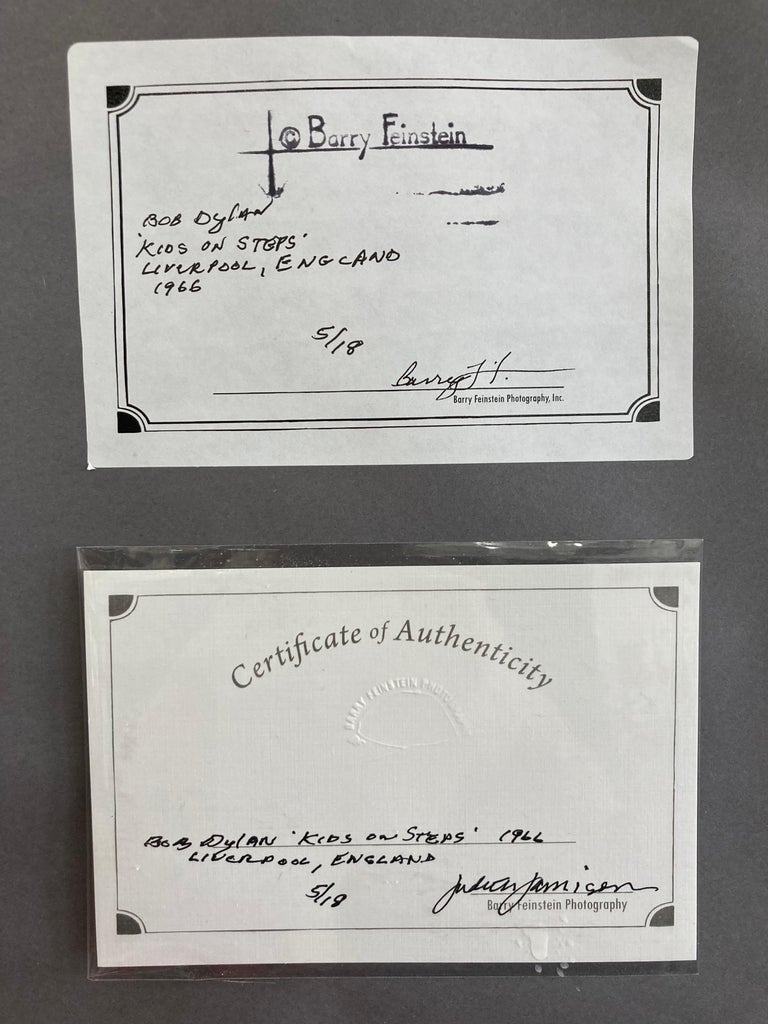 © Barry Feinstein
BOB DylAN
'KIDS ON STEPS'
LIVERPOOL, ENGLAND
1966
5/18
Barry Feinstein Photography, Inc.
Certificate of Authenticity
BARRY FEINSTEIN PHOTO
BOB DylAN 'KIDS ON STEPS' 1966
LIVERPOOL, ENGLAND
5/18
Judith Jamison
Barry Feinstein Photography